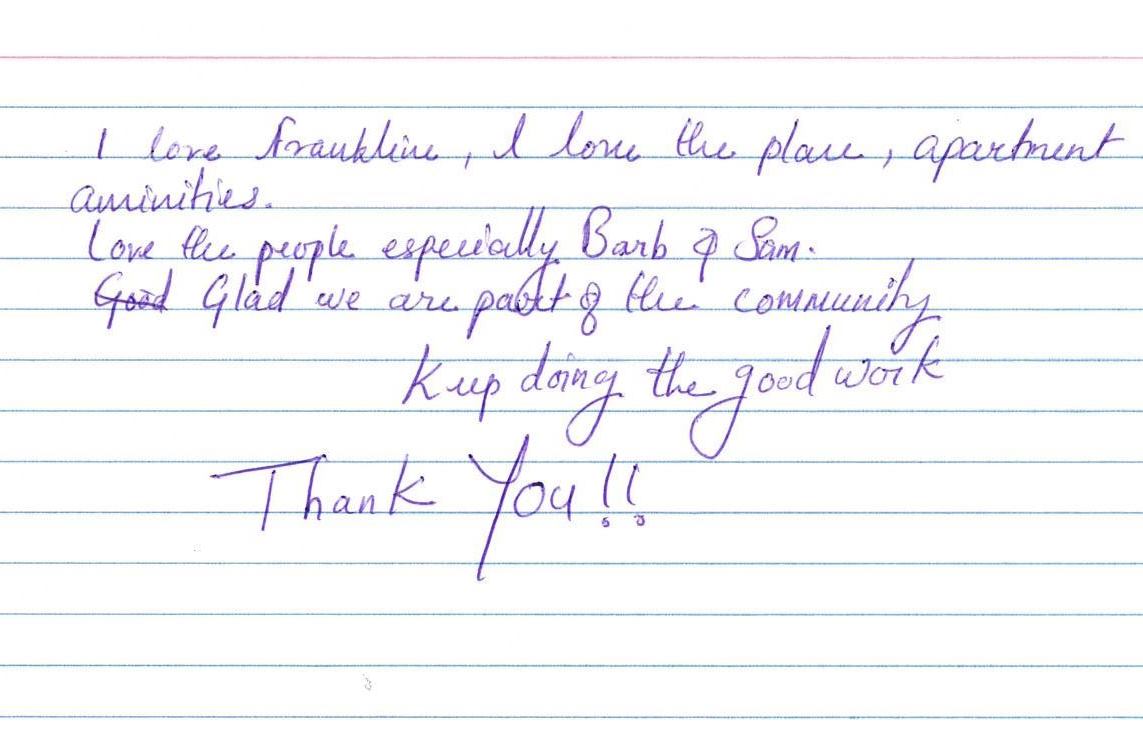 I love Frankline, I love the place, apartment
aminities.
Love the people especially Barb & Sam.
Good Glad we are part of the community
Keep doing the good work
Thank You!!